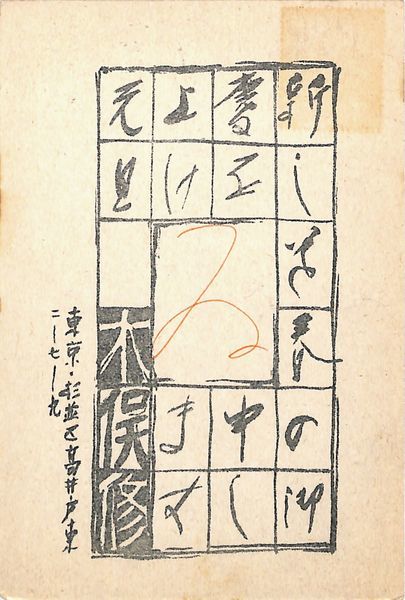 新しき春の御
慶を申し
上けます
元旦
木俣修
ゐ
東京・杉並区高井戸東
二ー七ー九